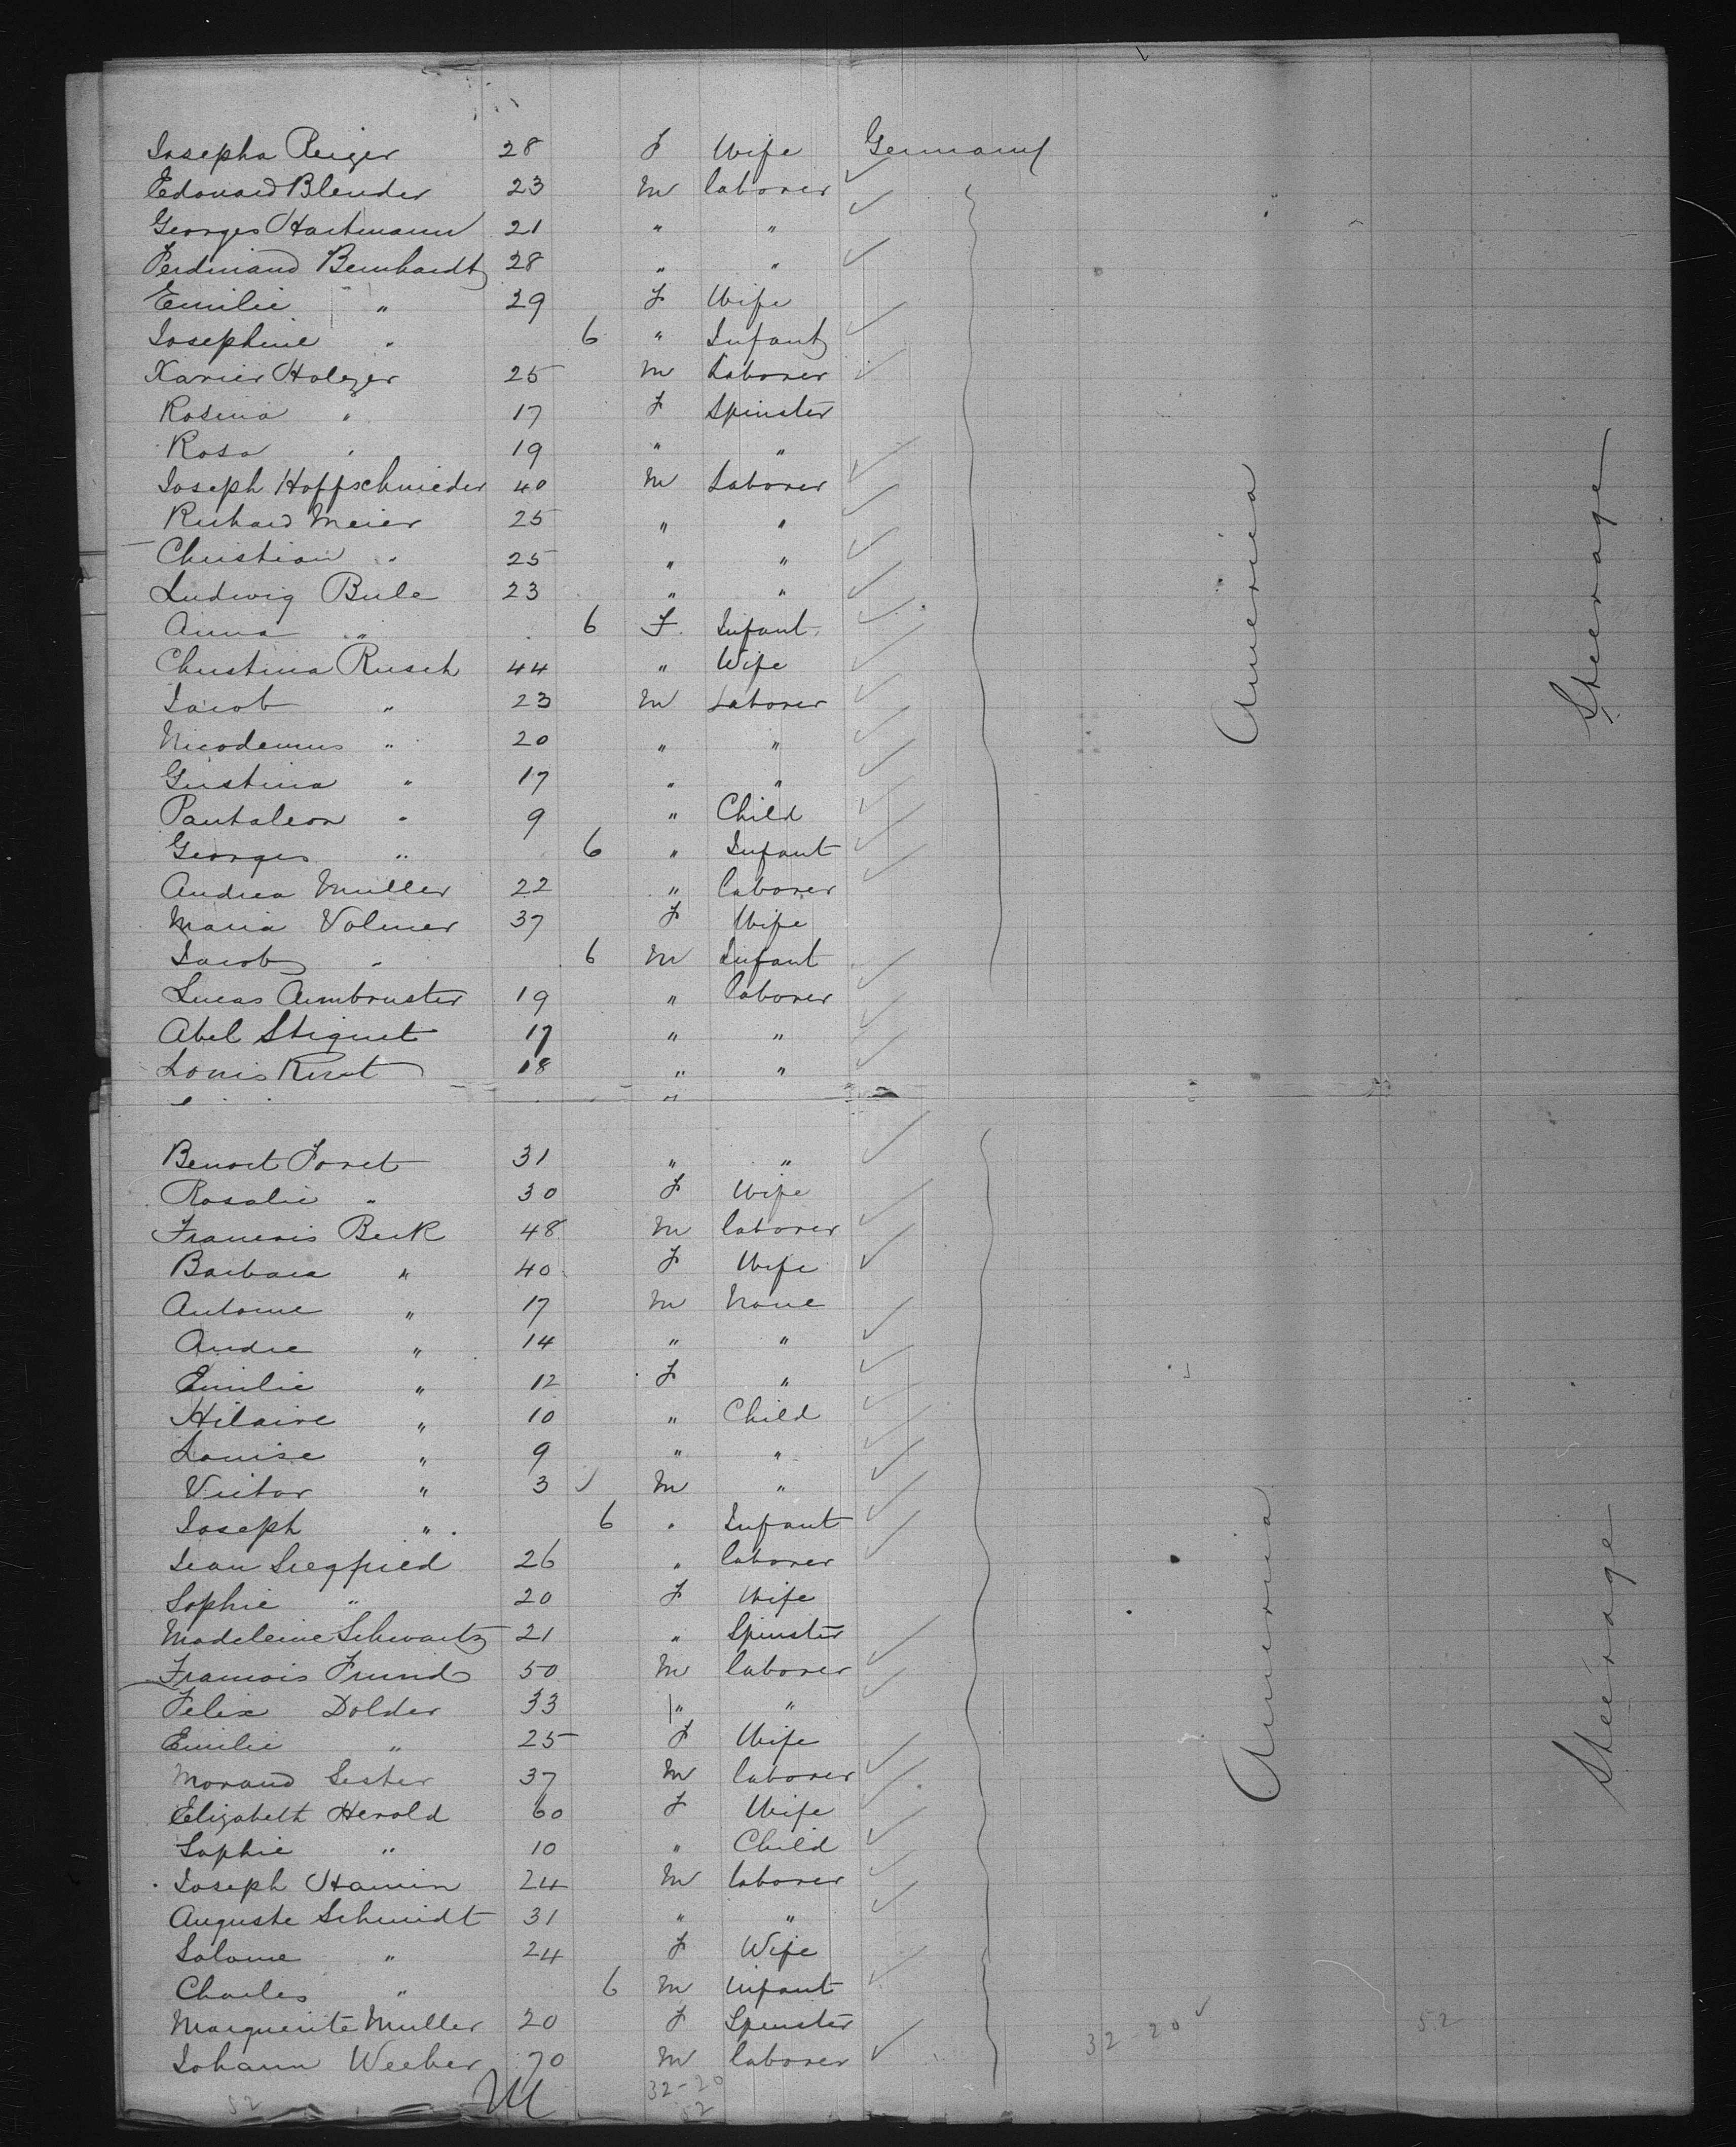 Josepha Reiger 28 F Wife Germany
Edouard Blender 23 M laborer
Georges Hartmann 21 " "
Ferdinand Bernhardt 28 " "
Emilie " 29 F Wife
Josephine " 6 " Infant
Xavier Holzer 25 M Laborer
Rosina " 17 F Spinster
Rosa " 19 " "
Joseph Hoffschnieder 40 M Laborer
Richard Meier 25 " "
Christian " 25 " "
Ludwig Bule 23 " "
Anna " 6 F Infant
Christina Rusch 44 " Wife
Jacob " 23 M Laborer
Nicodemus " 20 " "
Gustina " 17 " "
Pantaleon " 9 " Child
Georges " 6 " Infant
Andrea Muller 22 " laborer
Maria Volmer 37 F Wife
Jacob " 6 M Infant
Lucas Armbruster 19 " laborer
Abel Stiquet 17 " "
Louis 18 " "
America
Steerage
Benoit Foret 31 " "
Rosalie " 30 F Wife
Francois Beck 48 M laborer
Barbara " 40 F Wife
Antoine " 17 M None
Andre " 14 " "
Emilie " 12 F "
Hilaire " 10 " Child
Louise " 9 " "
Victor " 3 M "
Joseph " 6 " Infant
Jean Siegfried 26 " laborer
Sophie " 20 F Wife
Madeleine Schwartz 21 " Spinster
Francois Frund 50 M laborer
Felix Dolder 33 " "
Emilie " 25 F Wife
Morand Sester 37 M laborer
Elizabeth Herold 60 F Wife
Sophie " 10 " Child
Joseph Hamin 24 M laborer
Auguste Schmidt 31 " "
Salome " 24 F Wife
Charles " 6 M Infant
Marguerite Muller 20 F Spinster
Johann Weeber 70 M laborer
America
Steerage
32-20 52
32-20
52 52